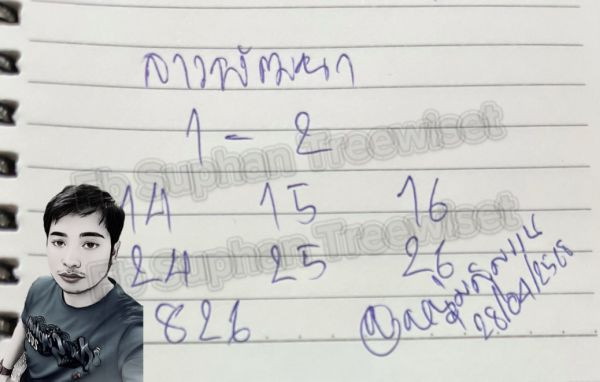 ลาวพัฒนา
1 - 2
14 15 16
24 25 26
826
28/04/2568
Fb Suphan Treewiset
Fb Suphan Treewiset